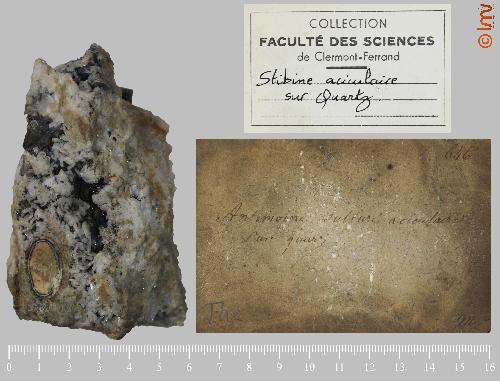 COLLECTION
FACULTÉ DES SCIENCES
de Clermont-Ferrand
Stibine aciculaire
sur Quartz
©lmv
646
Antimoine sulfuré aciculaire
sur quarz
0 1 2 3 4 5 6 7 8 9 10 11 12 13 14 15 16